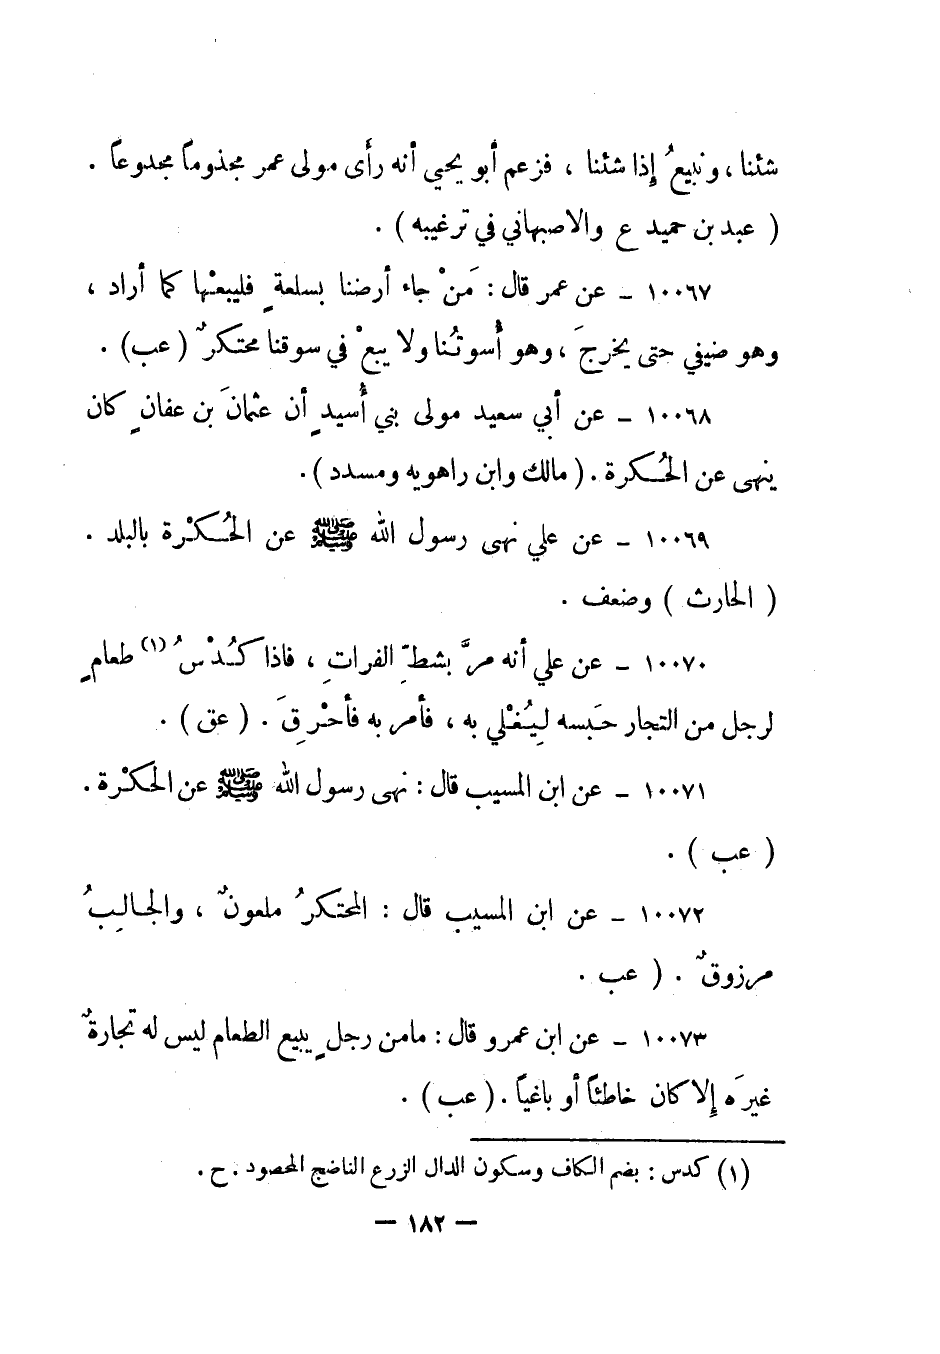 شئنا ، ونبيعُ إذا شئنا ، فزعم أبو يحيي أنه رأى مولى عمر مجذوماً مجدوعاً .
( عبد بن حميد ع والاصبهاني في ترغيبه ) .
١٠٠٦٧ ـ عن عمر قال : مَنْ جاء أرضنا بسلعةٍ فليبعْها كما أراد ،
وهو ضيفي حتى يخرجَ ، وهو أُسوتُنا ولا يبعْ في سوقنا محتكرٌ ( عب ) .
١٠٠٦٨ ـ عن أبي سعيد مولى بني أُسيدٍ أن عثمانَ بن عفانٍ كان
ينهى عن الحُكرة . ( مالك وابن راهويه ومسدد ) .
١٠٠٦٩ ـ عن علي نهى رسول الله ﷺ عن الحُكْرة بالبلد .
( الحارث ) وضعف .
١٠٠٧٠ ـ عن علي أنه مرَّ بشطِّ الفراتِ ، فاذا كُدْسُ (١) طعامٍ
لرجل من التجار حَبسه لِيُغْلي به ، فأمر به فأحْرِقَ . ( عق ) .
١٠٠٧١ ـ عن ابن المسيب قال : نهى رسول الله ﷺ عن الحكْرة .
( عب ) .
١٠٠٧٢ ـ عن ابن المسيب قال : المحتكرُ ملعونٌ ، والجالِبُ
مرزوقٌ . ( عب .
١٠٠٧٣ ـ عن ابن عمرو قال : مامن رجلٍ يبيع الطعام ليس له تجارةٌ
غيرَه إِلا كان خاطئاً أو باغياً . ( عب ) .
(١) كدس : بضم الكاف وسكون الدال الزرع الناضج المحصود . ح .
— ١٨٢ —